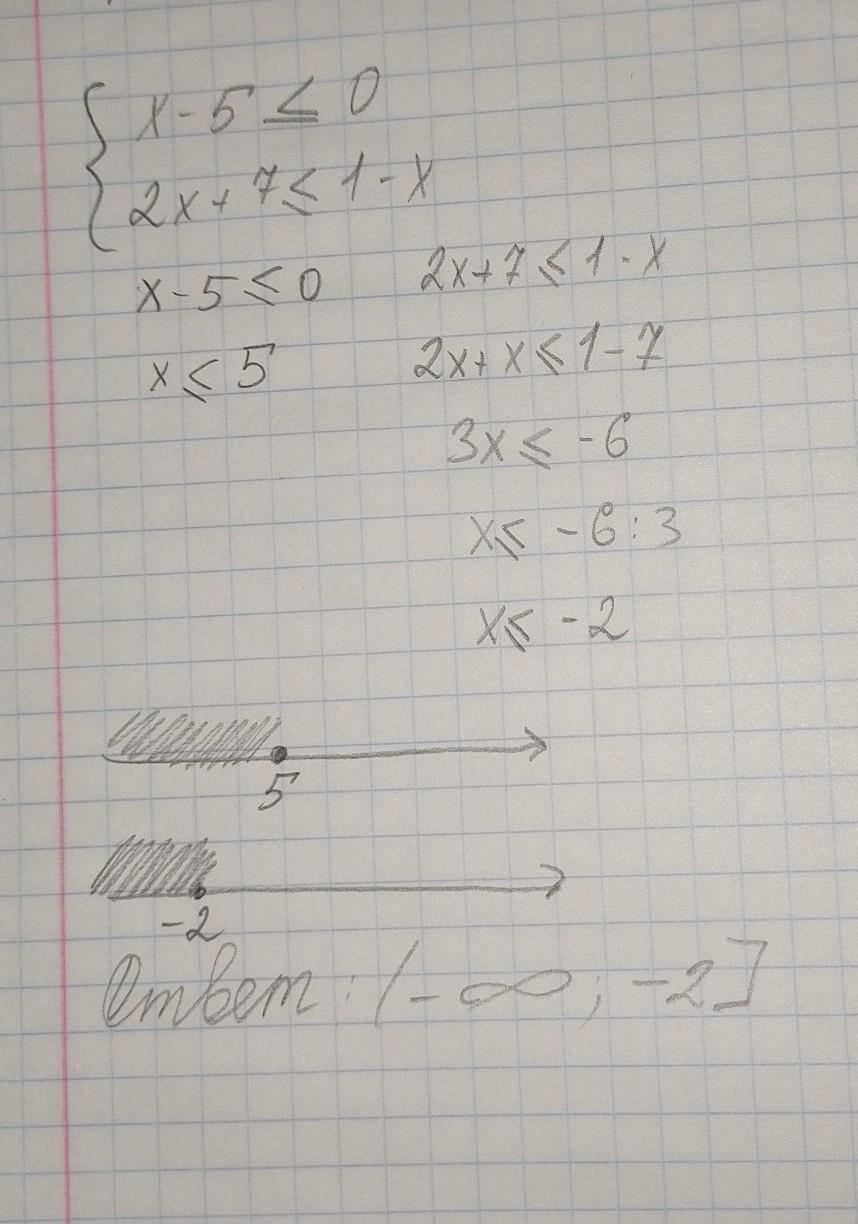 x - 5 ≤ 0
2x + 7 ≤ 1 - x
x - 5 ≤ 0
2x + 7 ≤ 1 - x
x ≤ 5
2x + x ≤ 1 - 7
3x ≤ -6
x ≤ -6 : 3
x ≤ -2
5
-2
Ответ: (-∞; -2]